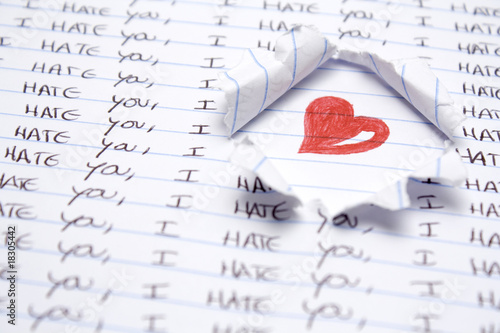 HATE you, I HATE you, I HATE
I HATE you, I HATE you, I HATE
I HATE you, I HATE I HATE
I HATE you, I I HATE
HATE you, I HATE
HATE you, I HATE
HATE you, I HATE
HATE you, I I HATE
I HATE you, I HATE I HATE
I HATE you, I HATE you, I HATE
I HATE you, I HATE you, I HATE
HATE you, I HATE you, I HATE
HATE you, I HATE you, I
HATE you, I HATE
Adobe Stock | #18305442